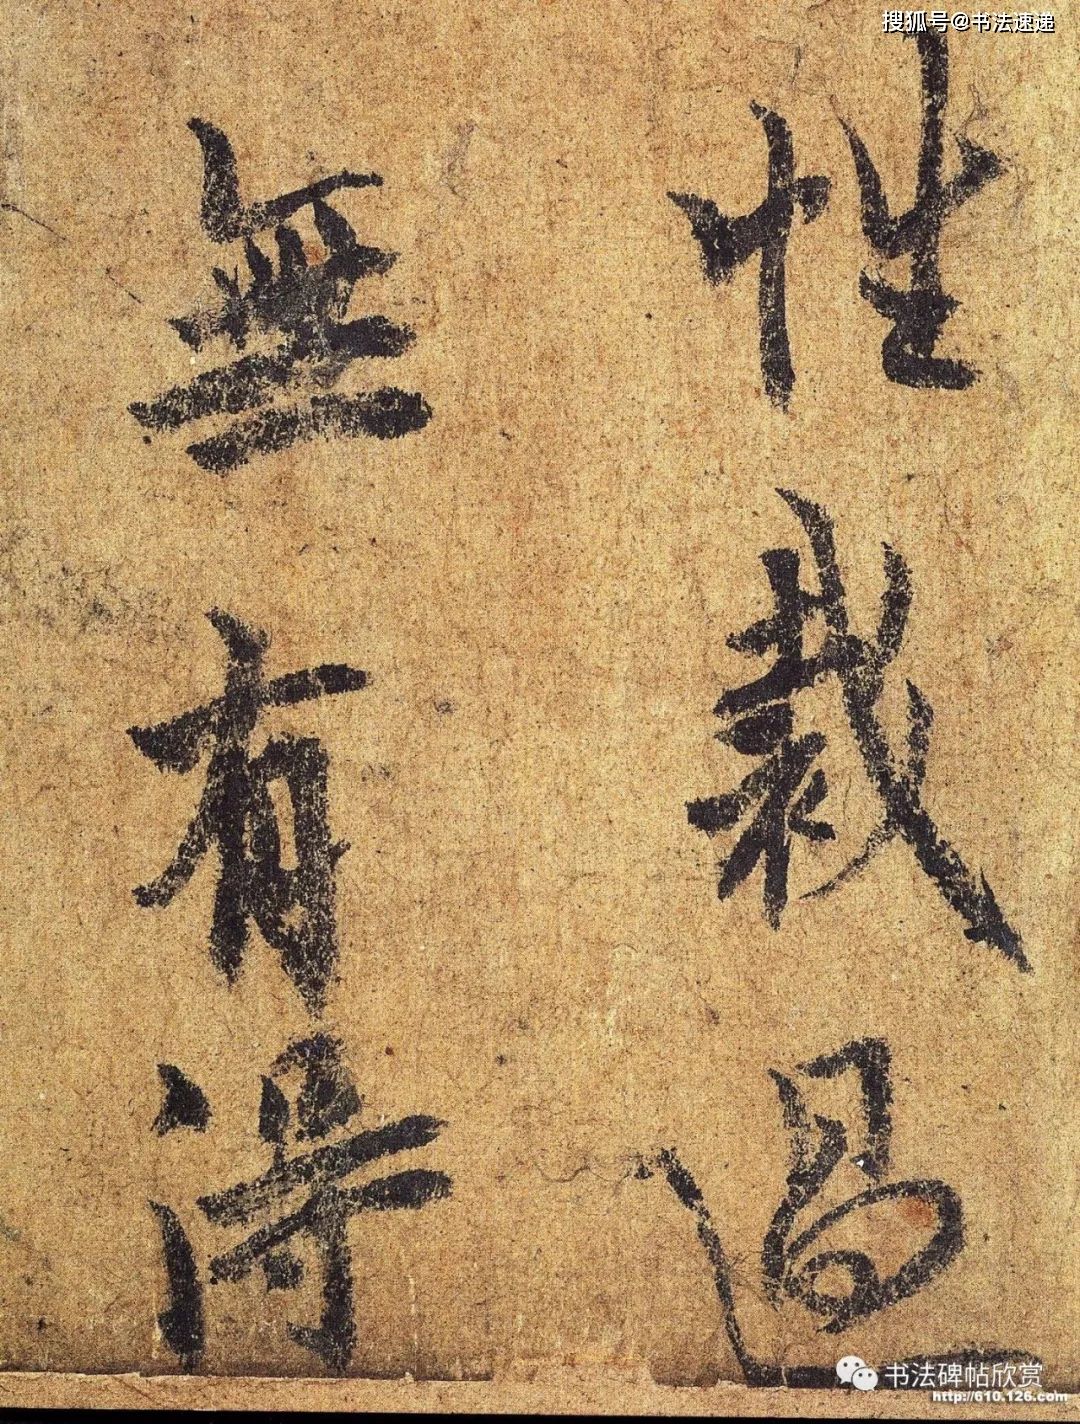 搜狐号@书法速递
性裁過
無有得
书法碑帖欣赏
http://610.126.com